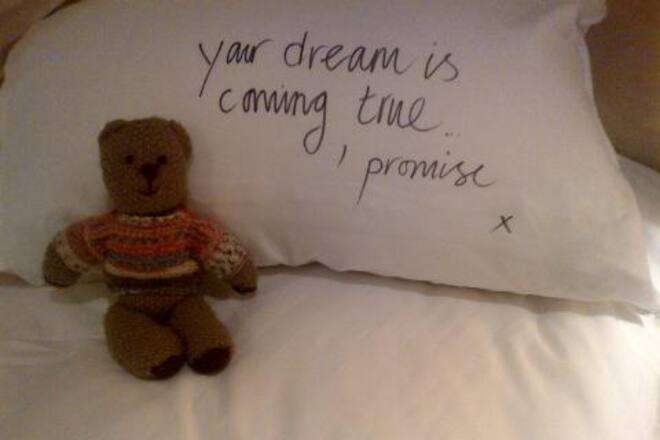 your dream is
coming true...
I promise
x